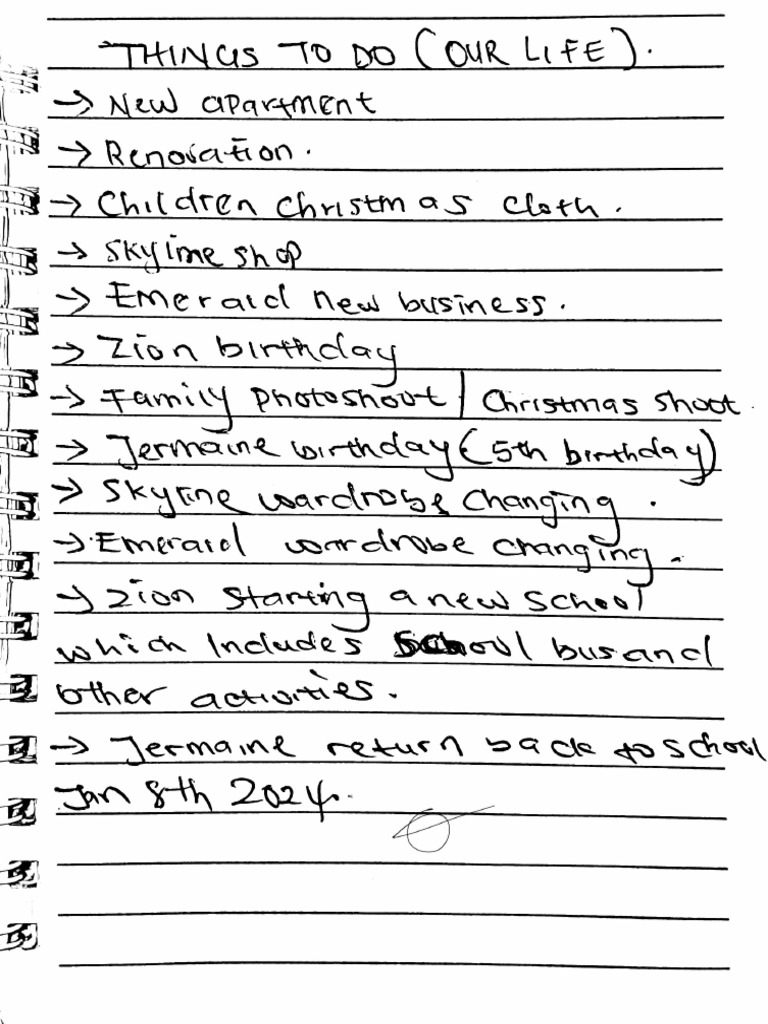 THINGS TO DO (OUR LIFE).
→ New apartment
→ Renovation.
→ Children Christmas cloth.
→ Skyline shop
→ Emerald new business.
→ Zion birthday
→ Family photoshoot | Christmas shoot.
→ Jermaine birthday (5th birthday)
→ Skyline wardrobe changing.
→ Emerald wardrobe changing.
→ Zion starting a new school
which includes school bus and
other activities.
→ Jermaine return back to school
Jan 8th 2024.